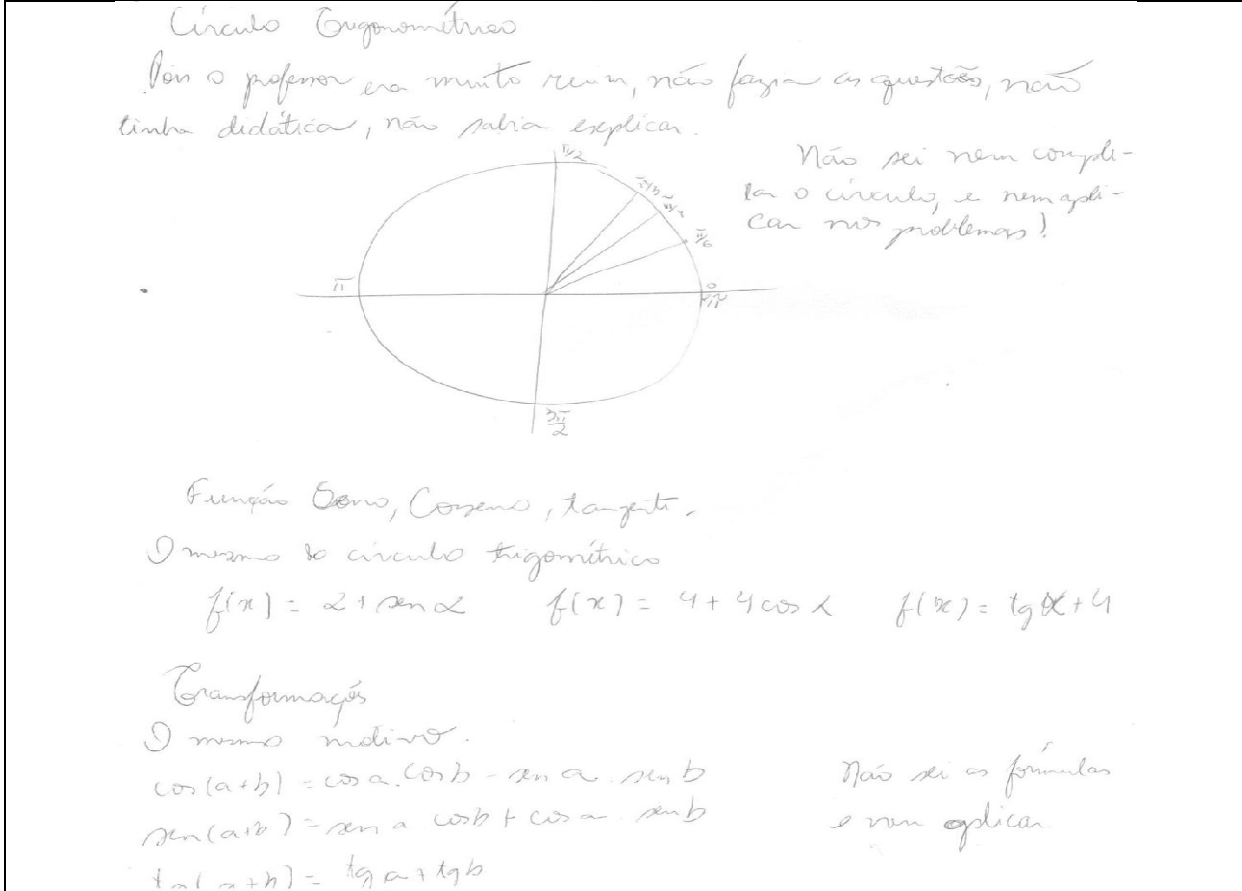 Círculo Trigonométrico
Pois o professor era muito ruim, não fazia as questões, não
tinha didática, não sabia explicar.
π/2
Não sei nem comple-
tar o círculo, e nem apli-
car nos problemas!
π/6
π
0
2π
3π/2
Função Seno, Cosseno, tangente.
O mesmo do círculo trigométrico
f(x) = 2 + sen α f(x) = 4 + 4 cos α f(x) = tg α + 4
Transformações
O mesmo motivo.
cos(a+b) = cos a . cos b - sen a . sen b
Não sei as fórmulas
e nem aplicar.
sen(a+b) = sen a cos b + cos a sen b
tg(a+b) = tg a + tg b